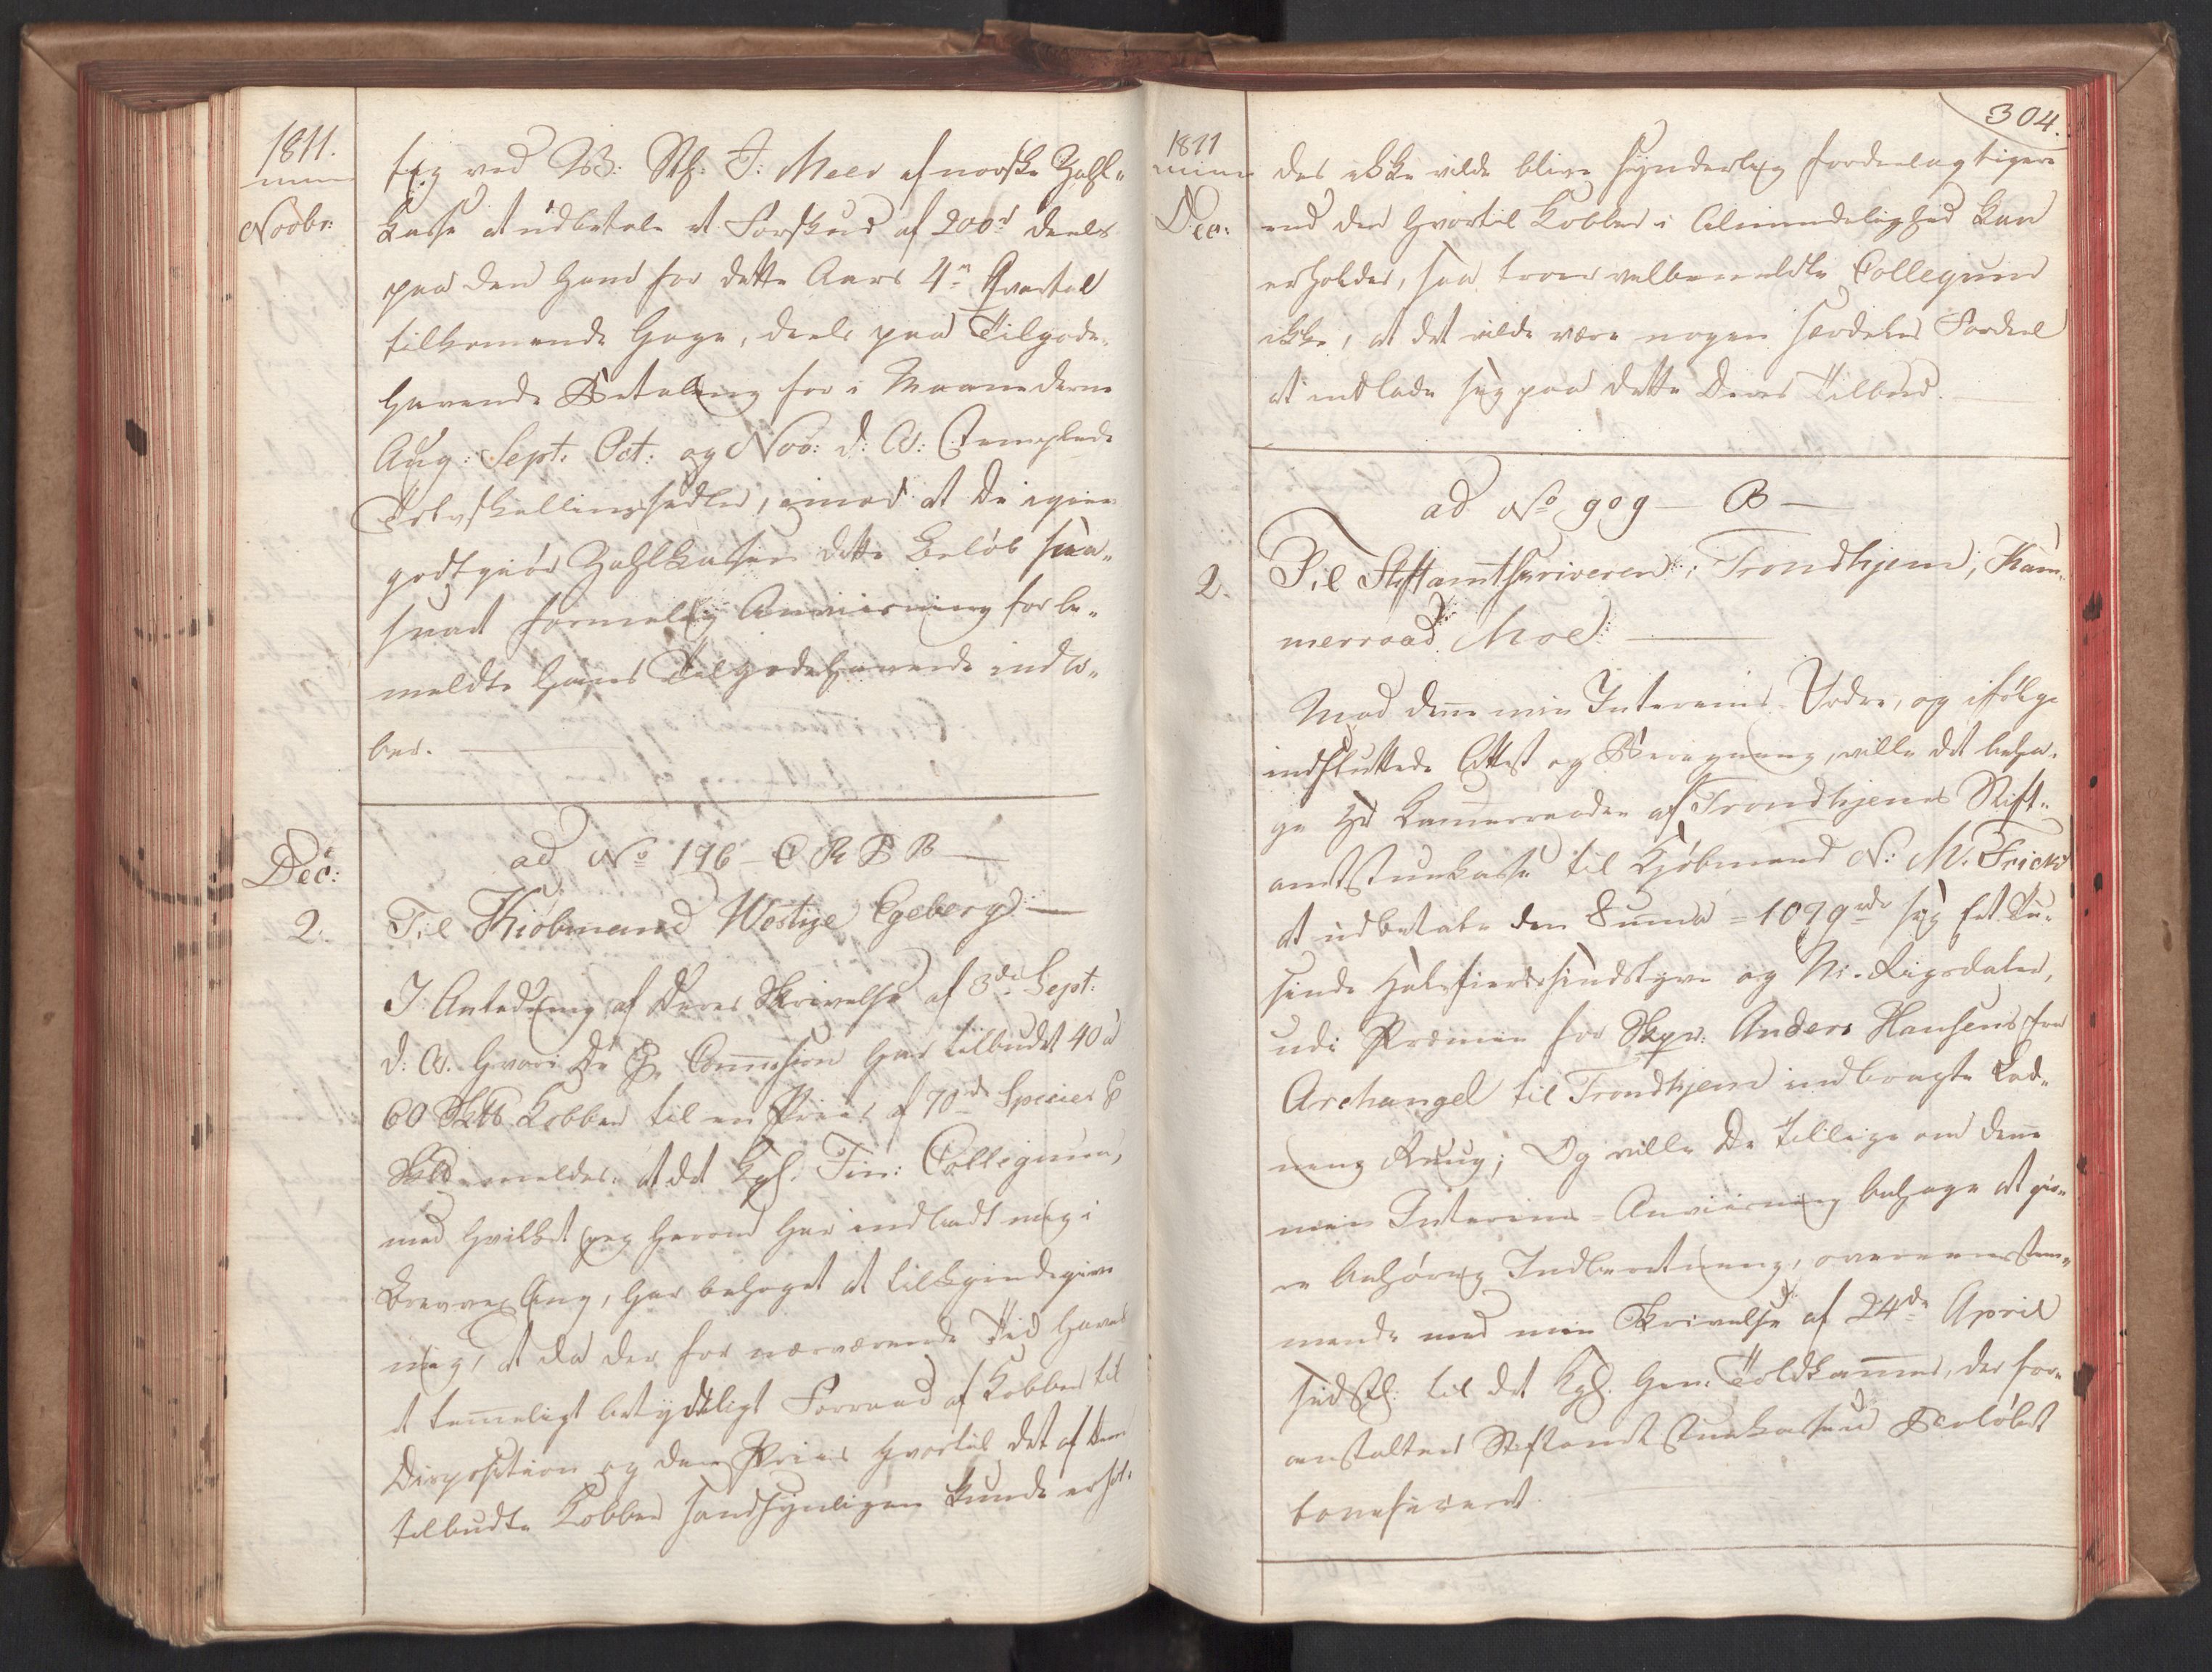 1811.
Novbr:
sig ved W: Mf: J: Meer af norske Zahl-
kasse at udbetale et Forskud af 200rd deels
paa den ham for dette Aars 4de Qvartal
tilkommende Gage, deels paa Tilgode-
havende Betaling for i Maanederne
Aug: Sept. Oct: og Nov: d: A: stemplede
Tolvskillingssedler, imod at De igien
godtgiør Zahlkassen dette Beløb saa-
snart formelig Anviisning for be-
meldte hans Tilgodehavende indlø-
ber.
ad No 176 - C R B B
Dec:
2.
Til Kiøbmand Westye Egeberg
I Anledning af Deres Skrivelse af 3de Sept.
d: A. hvori De Commission har tilbudt 40 a
60 Sk℔ Kobber til en Priis af 70rd Species
Sk℔ meldes: at det Kgl. Fin: Collegium,
med hvilket jeg herom har indladt mig i
Brevvexling, har behaget at tilkiendegive
mig, at da der for nærværende Tid haves
et temmeligt betydeligt Forraad af Kobber til
Disposition og den Priis hvortil det af Dem
tilbudte Kobber sandsynligen kunde erhol-
304.
1811
Dec:
des ikke vilde blive synderlig fordeelagtigere
end den hvortil Kobber i Almindelighed kan
erholdes, saa troer velbemeldte Collegium
ikke, at det vilde være nogen særdeles Fordeel
at indlade sig paa dette Deres Tilbud.
ad No 909 - B -
2.
Til Stiftamtskriveren i Trondhjem, Kam-
merraad Moe
Mod denne min Interims Ordre, og ifølge
indsluttede Attest og Beregning, ville det beha-
ge Hr Kammerraaden af Trondhjems Stift-
amtstuekasse til Kjøbmand N: M. Fricke
at udbetale den Summa = 1079rdr siig Et Tu-
sinde Halvfierdesindstyve og Ni Rigsdaler,
udi Præmie for Skpr: Anders Hansens fra
Archangel til Trondhjem indbragte Lad-
ning Ruug; Og ville De tillige om denne
min Interims-Anviisning behage at giø-
re behørig Indberetning, overeensstem-
mende med min Skrivelse af 24de April
sidstl: til det Kgl. Gen: Toldkammer, der for-
anstalter Stiftamtstuekassen Beløbet
bonificeret.